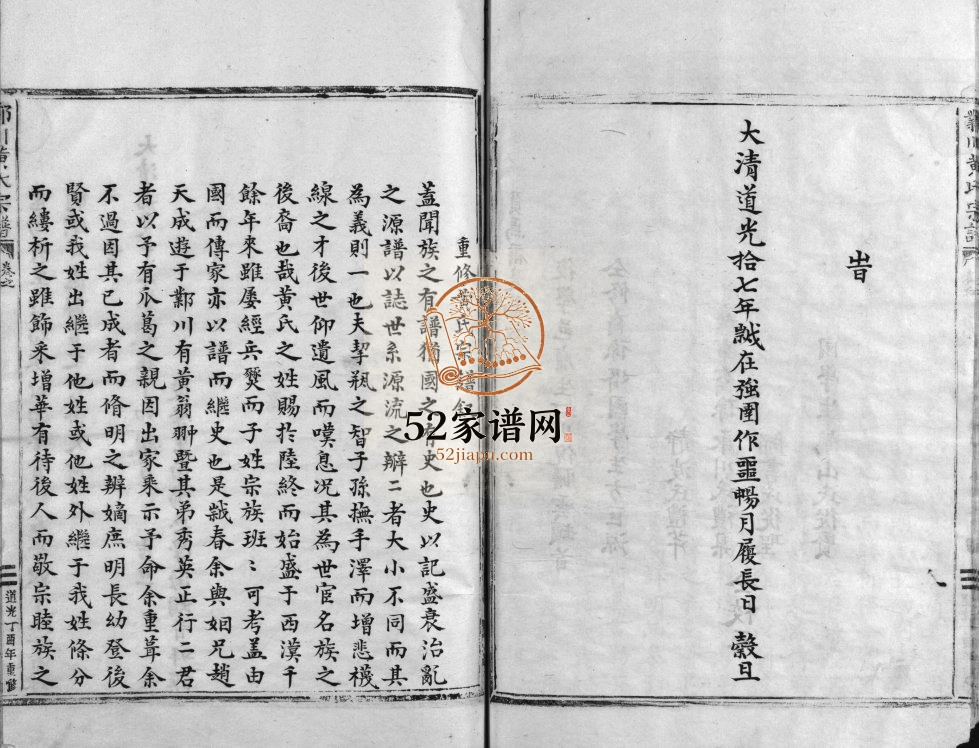 旹
大清道光拾七年歲在強圉作噩暢月履長日　穀旦
鄴川黃氏宗譜
重修黃氏宗譜叙
蓋聞族之有譜猶國之有史也史以記盛衰治亂
之源譜以誌世系源流之辦二者大小不同而其
為義則一也夫挈瓶之智子孫撫手澤而增悲襪
線之才後世仰遺風而嘆息况其為世官名族之
後裔也哉黃氏之姓賜於陸終而始盛于西漢千
餘年來雖屡經兵燹而子姓宗族班〻可考盖由
國而傳家亦以譜而繼史也是歲春余與姻兄趙
天成遊于鄴川有黃翁翀暨其弟秀英正行二君
者以予有瓜葛之親因出家乘示予命余重葺余
不過因其已成者而脩明之辨嫡庶明長幼登後
賢或我姓出繼于他姓或他姓外繼于我姓條分
而縷析之雖飾采增華有待後人而敬宗睦族之
黃氏宗譜
卷之
道光丁酉年重修
52家谱网
52jiapu.com